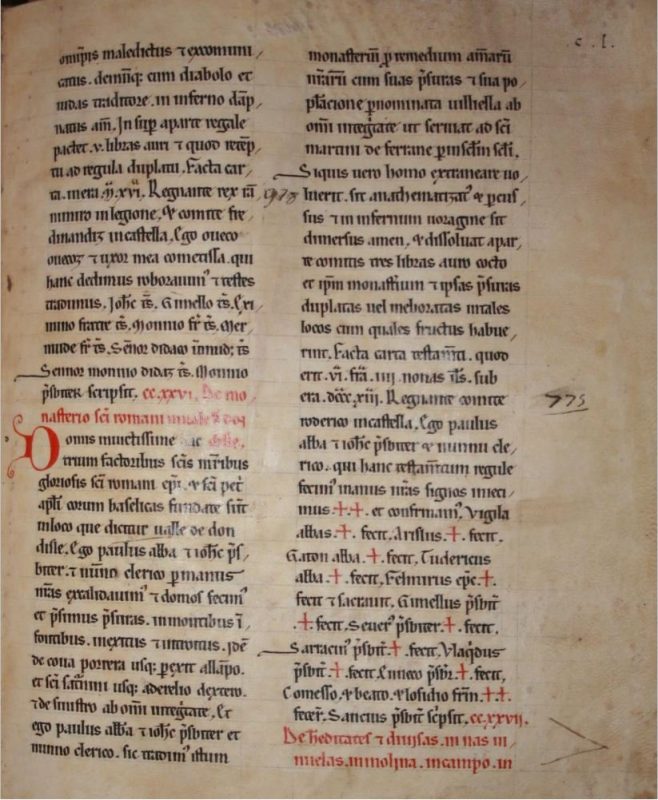 c. l.
omnipis maledictus ⁊ excomuni
catus. demūq; cum diabolo et
iudas traditore. in inferno dāp
natus am̄. In sup̄ aparte regale
pactet. v. libras auri ⁊ quod retēp
tu ad regula duplatū. Facta car
ta. mera
Regnante rex rā
nimiro in legione, & comite fre
dinandiz in castella, Ego oueco
ouecoz ⁊ uxor mea cometissa. qui
hanc decimus roborauim⁹ ⁊ testes
tradimus. Joh̄c t̄s. Gimello t̄s. Exi
mino fratre t̄s. Monnio fr̄ t̄s. Mer
mude fr̄ t̄s. Sen̄or didaco
t̄s.
Sennor monnio didaz t̄s. Monnio
p̄sbiter scripsit. cc.xxvi. De mo
nasterio sc̄i romani
Domis inuictissime ac
trium factoribus sc̄is m̄ribus
gloriosis sc̄i romani ep̄i. & sc̄i pet̄
ap̄li eorum baselicas fundate sūt
in loco que dicitur ualle de don
disle. Ego paulus alba ⁊ ioh̄c p̄s
biter. ⁊ nūno clerico p̄ manus
n̄ras exalidauim⁹ ⁊ domos fecim⁹
et p̄simus p̄suras. in montibus ī
fontibus. in exitus ⁊ introitus. Idē
de coua porrera usq; p̄exit allāpo.
et sc̄i saturnini usq; aderelio dextero.
⁊ de sinistro ab om̄i inteḡtate, Et
ego paulus alba ⁊ ioh̄c p̄sbiter et
nunno clerico. sic tradim⁹ istum
monasteriū p̄ remedium am̄arū
n̄rārū cum suas p̄suras ⁊ sua po
p̄lacione p̄nominata uilliella ab
om̄i inteḡtate ut seruiat ad sc̄i
martini de ferrane p̄ in sc̄lm sc̄li,
Siquis uero homo extraneare uo
978
luerit. sit anathematizat⁹ & p̄cus
sus ⁊ in infernum uoragine sit
dimersus amen, & dissoluat apar
te comitis tres libras auro cocto
et ip̄m monast̄ium ⁊ ipsas p̄suras
duplatas uel meboratas in tales
locos cum quales fructus habue
rint. Facta carta testam̄ti. quod
erit. vi. fr̄a. iiij. nonas iłs. sub
era. dccc.xiii. Regnante comite
775
roderico in castella, Ego paulus
alba ⁊ ioh̄c p̄sbiter & nunnu cle
rico. qui hanc testam̄tum regule
fecim⁹ manus n̄ras signos iniecī
mus.++. et confirmam⁹. Vigila
abbas.+. fecit. Aristius.+. fecit.
Gaton alba.+. fecit. Tudericus
alba.+. fecit, Felmirus ep̄c.+.
fecit ⁊ sacrauit. Gimellus p̄sbit̄
.+. fecit. Seuer⁹ p̄sbiter.+. fecit.
Sarracin⁹ p̄sbit̄.+. fecit. Vlaq̄dus
p̄sbit̄.+. fecit. Enneco p̄sbr̄.+. fecit.
Gomesso, & beato, & losidio fr̄m.++.
fecer̄. Sancius p̄sbit̄ sc̄psit. cc.xxvii.
De h̄editates ⁊ diuisas. in nas in
nuelas. in molina. in campo. in